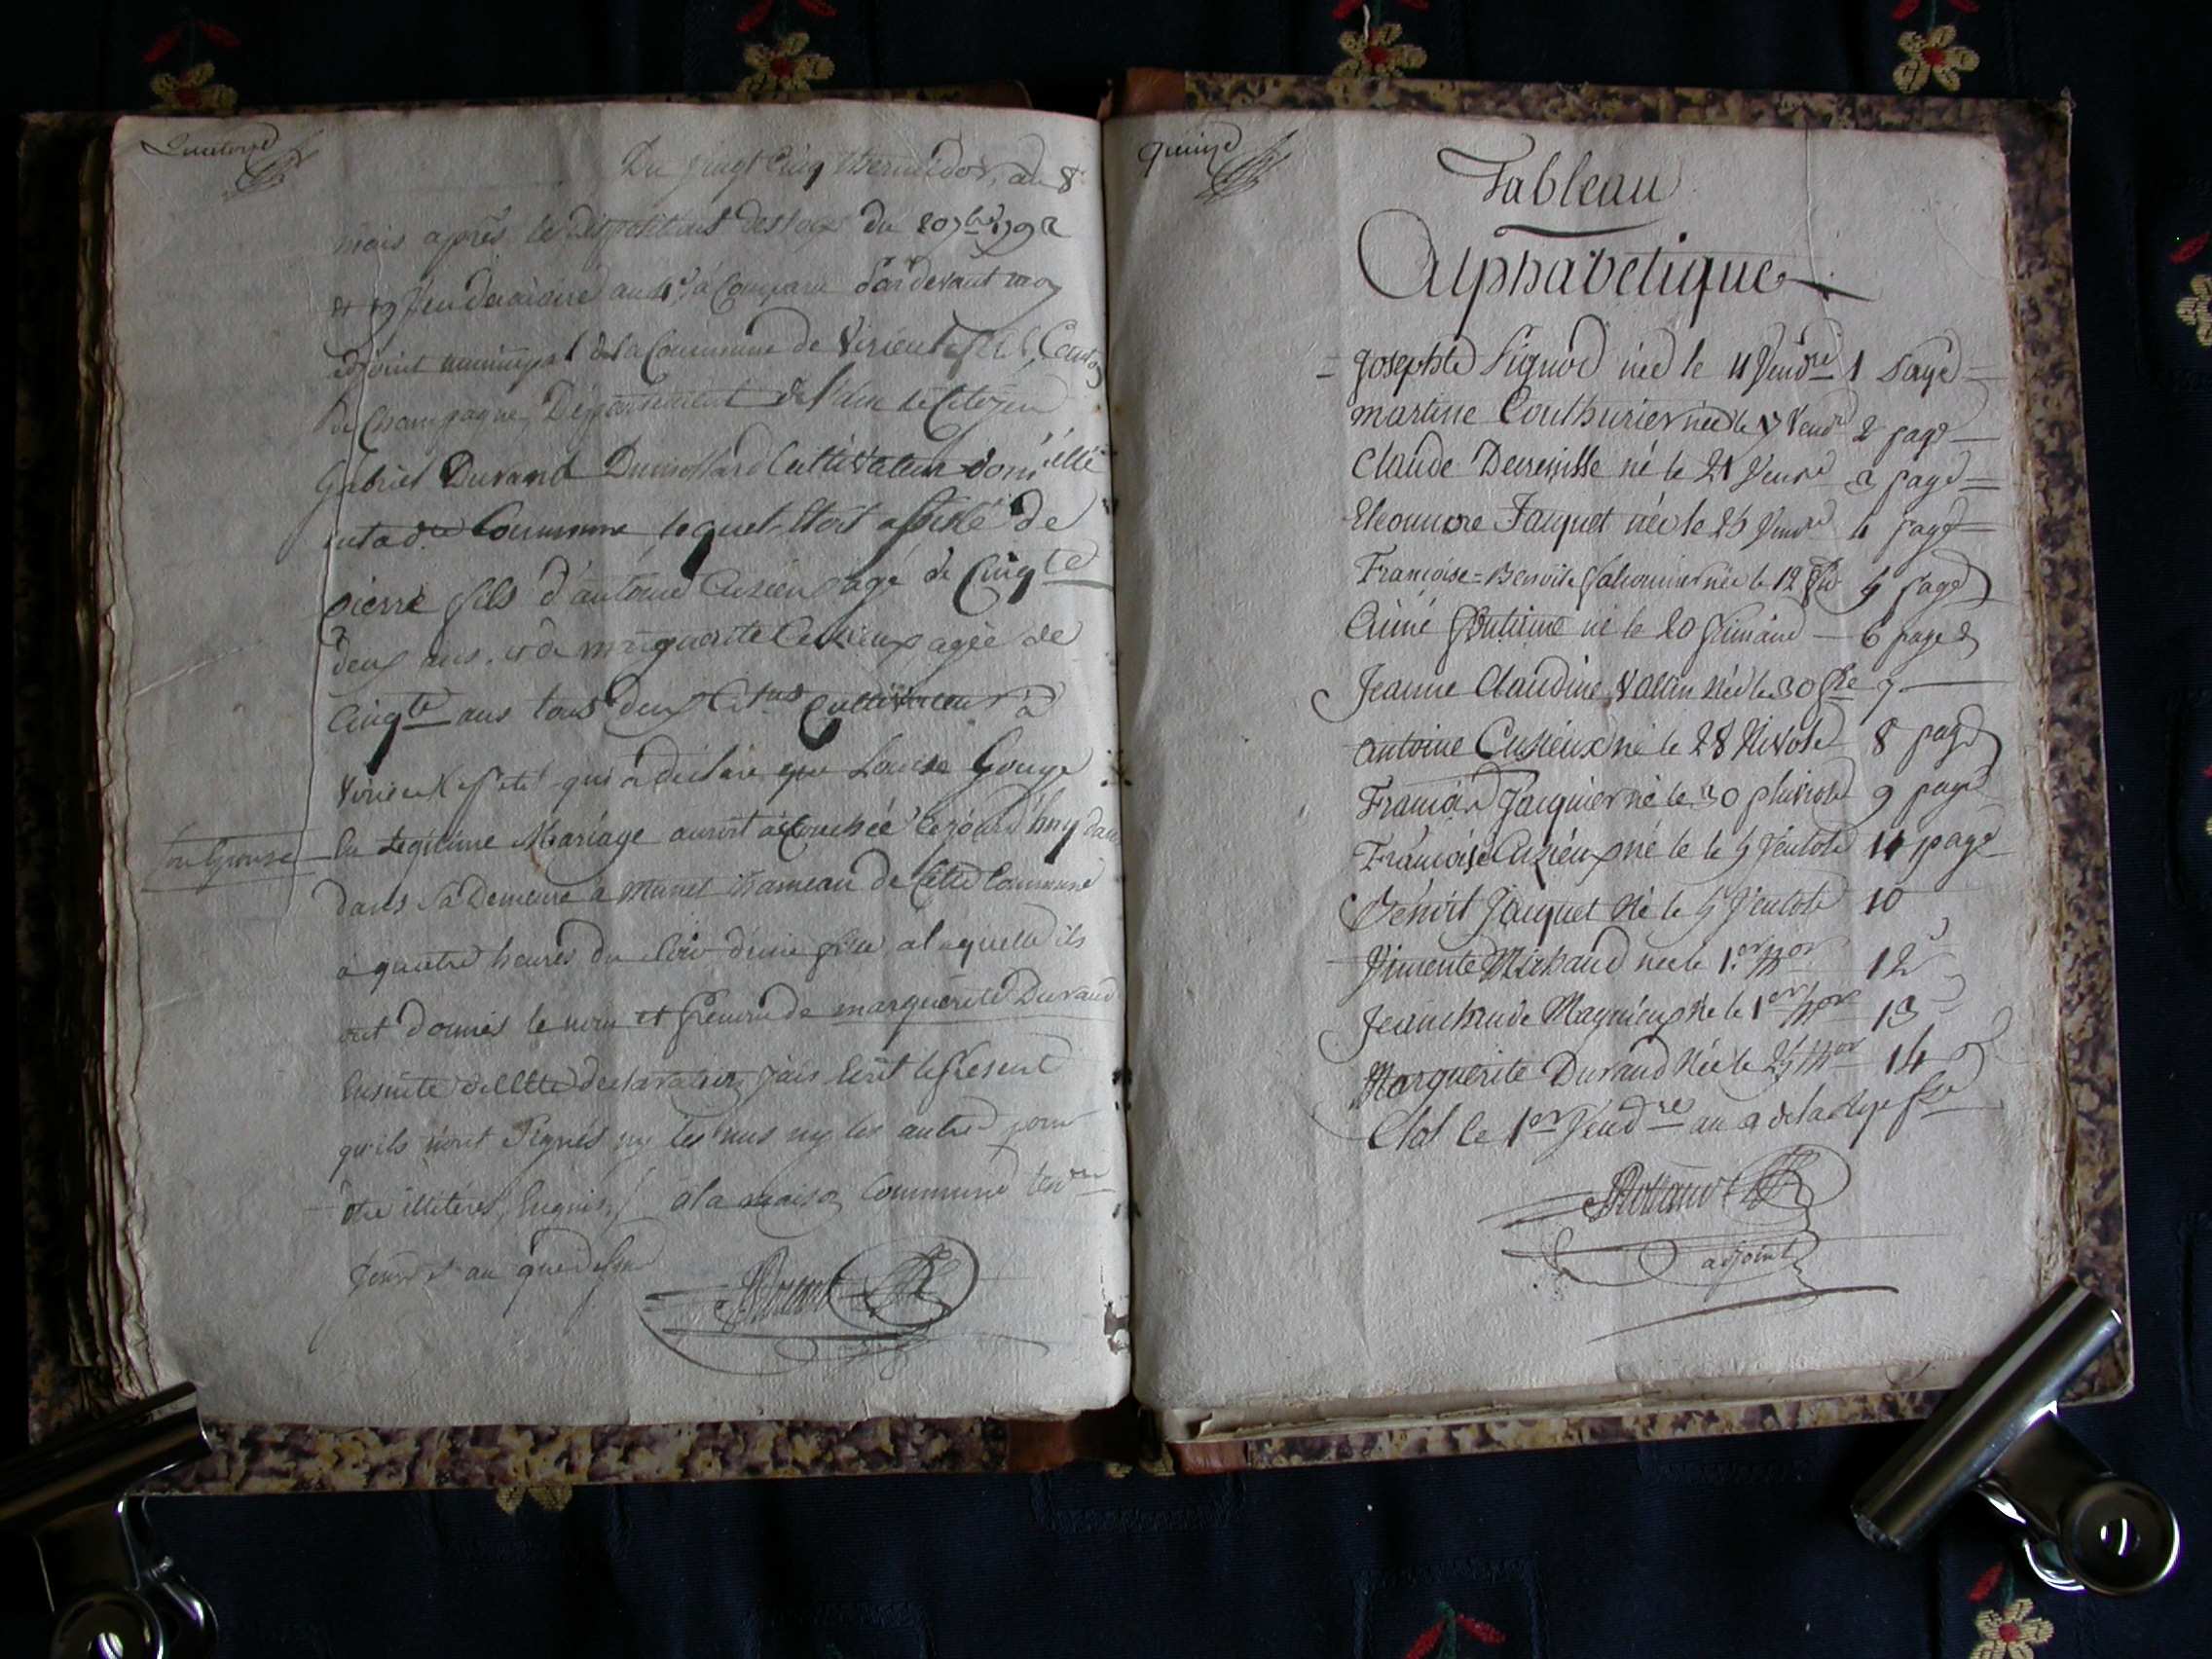 Quatorze
Du vingt Cinq thermidor, an 8
mois après les dispositions des loix du 20 7bre 1792
et 19 Vendemiaire an 4e à Comparu Pardevant moy
adjoint municipal de la Commune de Virieu le petit, Canton
de Champagne, Département de l'ain le Citoyen
Gabriel Durand Dumollard Cultivateur domicilié
en ladte Commune lequel étoit assisté de
pierre fils d'antoine Cuzieux agé de Cinqte
deux ans, et de marguerite Cuzieux agée de
Cinqte ans tous deux Cultivateurs à
Virieu le petit qui à déclaré que Louise Gouge
son Epouse
En Legitime Mariage auroit accouchée cejourd'huy dans
dans sa demeure à Munet hameau de Cette Commune
à quatre heures du soir d'une fille a laquelle ils
ont donnés le nom et prenom de marguerite Durand
Ensuite de Cette declaration j'ais Ecrit le présent
qu'ils n'ont signés ny les uns ny les autres pour
être illiterés, Enquis / à la maison Commune les
jour et an que dessus
Quinze
Tableau
Alphabétique
Josephte Pignod née le 4 Vendre 1 page
martine Couthurier née le 17 Vendre 2 page
Claude Decremisse né le 21 Vendre 3 page
Eleonnore Jacquet née le 25 Vendre 4 page
Françoise=Benoite née le 12 5 page
Aimé né le 20 frimaire 6 page
Jeanne Claudine Vallin née le 30 fre 7
antoine Cusieux né le 28 Nivose 8 page
François Jacquier né le 30 pluviose 9 page
Françoise Cuzieux né le le 5 Ventose 11 page
Benoit Jacquet Né le 5 Ventose 10
Vimente Michaud née le 1er 12
Jeanclaude Magnieux Né le 1er 13
Marguerite Durand Née le 25 14
Clos le 1er Vendre an 9 de la Rep
adjoint